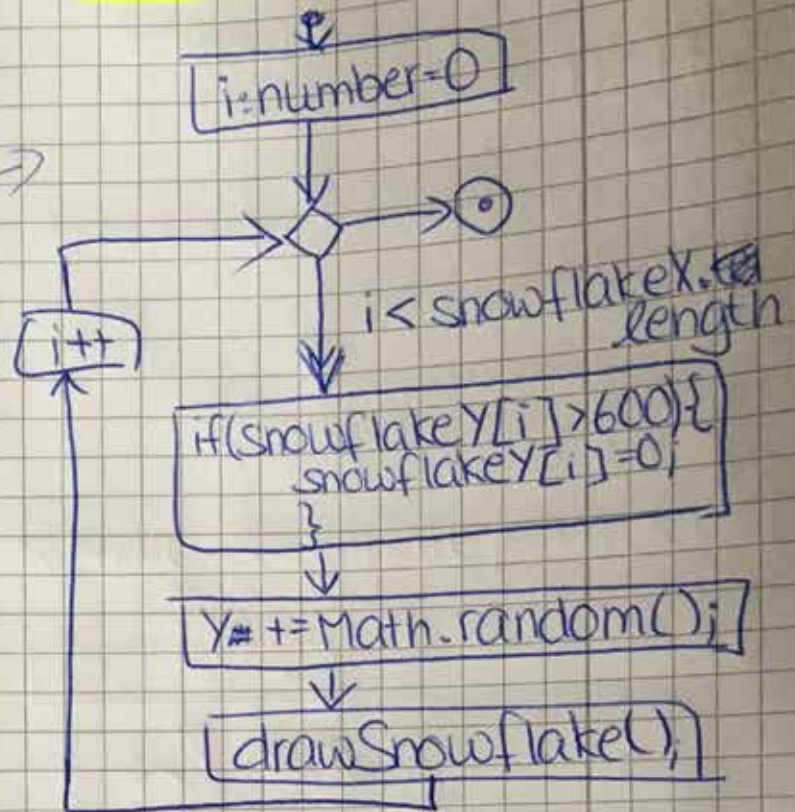 i:number=0
i<snowflakeX.
length
i++
if(snowflakeY[i]>600){
snowflakeY[i]=0;
}
y += Math.random();
drawSnowflake();